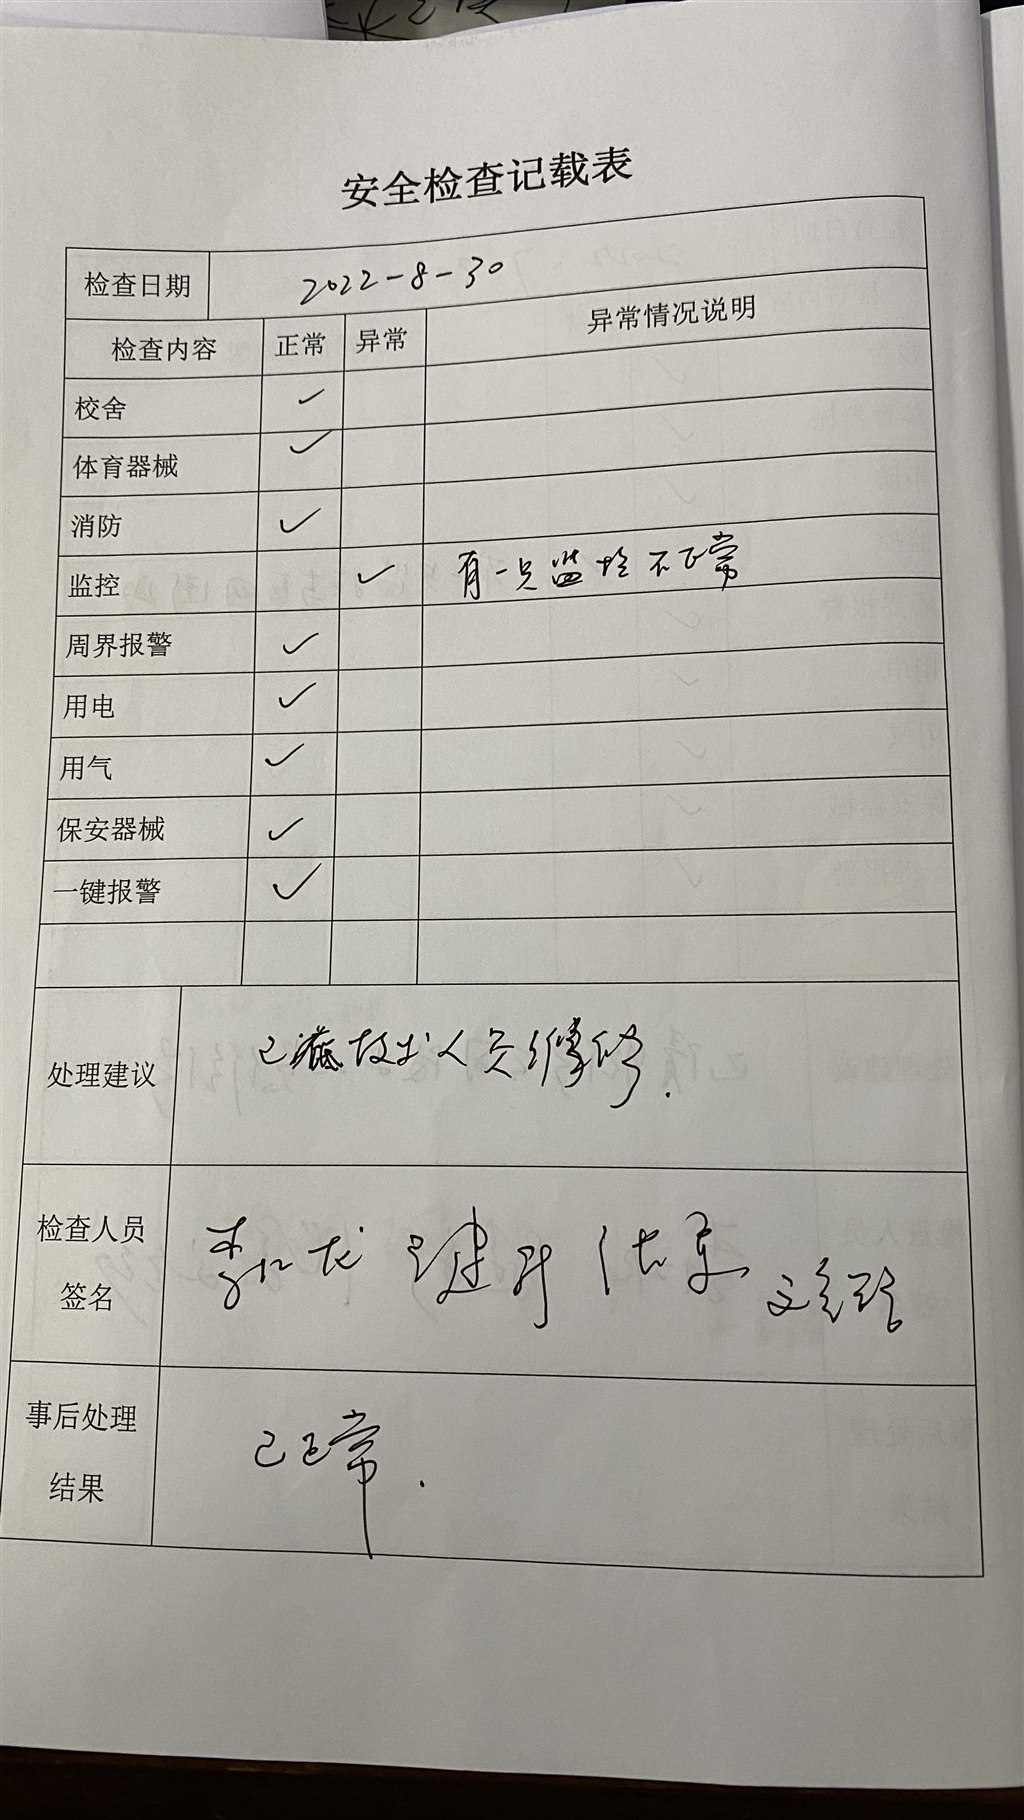 安全检查记载表
检查日期 2022-8-30
检查内容 正常 异常 异常情况说明
校舍 ✓
体育器械 ✓
消防 ✓
监控 ✓ 有一只监控不正常
周界报警 ✓
用电 ✓
用气 ✓
保安器械 ✓
一键报警 ✓
处理建议 已 技术人员维修.
检查人员
签名
事后处理
结果
已正常.